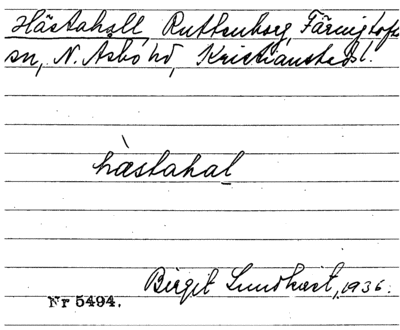 Hästahall, Ruttenborg, Färingtofta
sn, N. Åsbo hd, Kristianstads l.
hàstahal
Birgit Lundkvist, 1936.
Nr 5494.